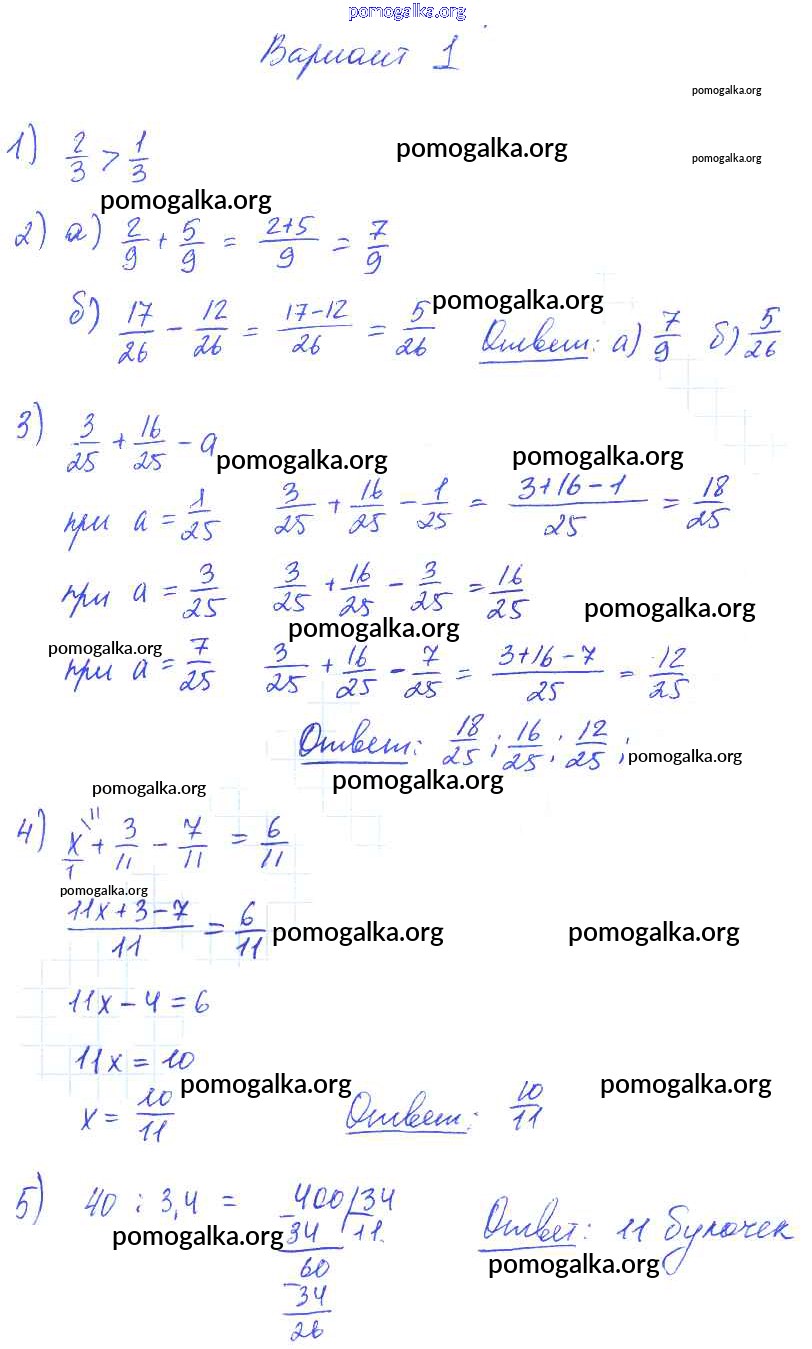 pomogalka.org
Вариант 1
pomogalka.org
1) 2/3 > 1/3
pomogalka.org
pomogalka.org
pomogalka.org
2) а) 2/9 + 5/9 = (2+5)/9 = 7/9
pomogalka.org
б) 17/26 - 12/26 = (17-12)/26 = 5/26 Ответ: а) 7/9 б) 5/26
3) 3/25 + 16/25 - a
pomogalka.org
pomogalka.org
при a = 1/25 3/25 + 16/25 - 1/25 = (3+16-1)/25 = 18/25
при a = 3/25 3/25 + 16/25 - 3/25 = 16/25
pomogalka.org
pomogalka.org
pomogalka.org
при a = 7/25 3/25 + 16/25 - 7/25 = (3+16-7)/25 = 12/25
Ответ: 18/25; 16/25; 12/25;
pomogalka.org
pomogalka.org
pomogalka.org
4) x/1 \11 + 3/11 - 7/11 = 6/11
pomogalka.org
(11x+3-7)/11 = 6/11
pomogalka.org
pomogalka.org
11x - 4 = 6
11x = 10
pomogalka.org
pomogalka.org
x = 10/11 Ответ: 10/11
5) 40 : 3,4 = 400 | 34 Ответ: 11 булочек
34 11.
pomogalka.org
pomogalka.org
60
34
26